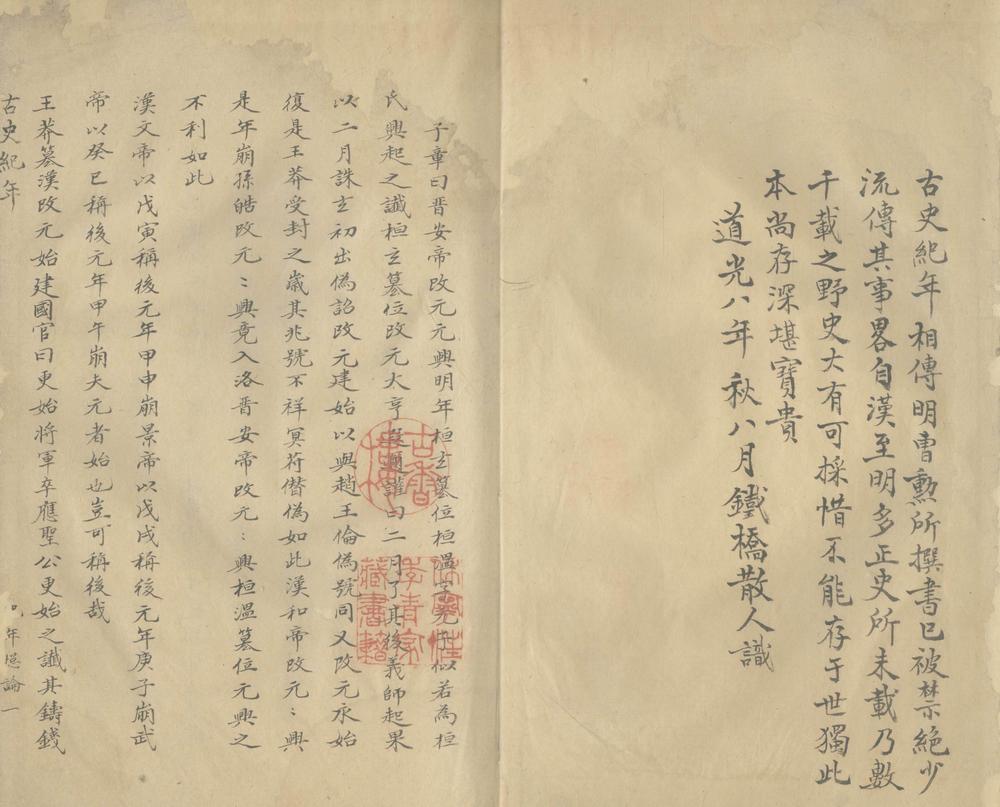 古史紀年相傳明曹勳所撰書已被禁絶少
流傳其事畧自漢至明多正史所未載乃數
千載之野史大有可採惜不能存于世獨此
本尚存深堪寶貴
道光八年秋八月鐵橋散人識
子章曰晋安帝改元元興明年桓玄篡位桓温字元子似若為桓
氏興起之讖桓玄篡位改元大亨遐邇讙曰二月了其後義師起果
以二月誅玄初出偽詔改元建始以與趙王倫偽號同又改元永始
復是王莽受封之歲其兆號不祥冥符僭偽如此漢和帝改元：興
是年崩孫皓改元：興竟入洛晋安帝改元：興桓温篡位元興之
不利如此
漢文帝以戊寅稱後元年甲申崩景帝以戊戌稱後元年庚子崩武
帝以癸巳稱後元年甲午崩夫元者始也豈可稱後哉
王莽篡漢改元始建國官曰更始將軍卒應聖公更始之讖其鑄錢
古史紀年
年總論一
古香
藏書